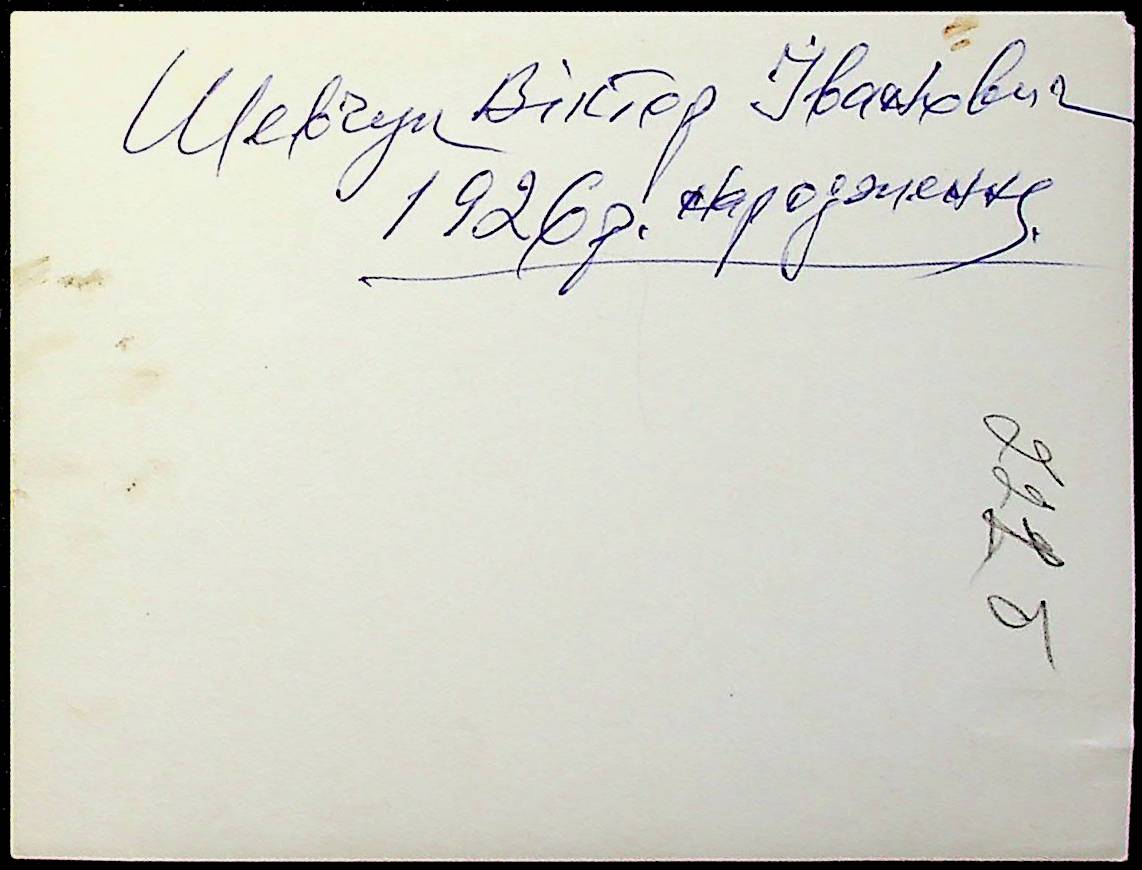 Шевчук Віктор Іванович
1926 р. народження.